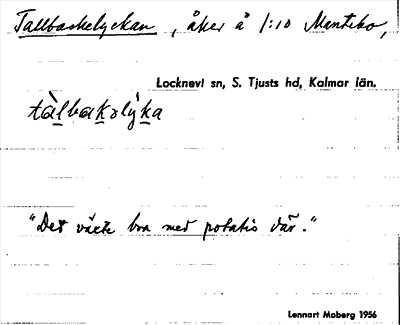 Tallbackelyckan, åker å 1:10 Mantebo,
Locknevi sn, S. Tjusts hd, Kalmar län.
tàlbakəlỳka
"Det växte bra med potatis där."
Lennart Moberg 1956